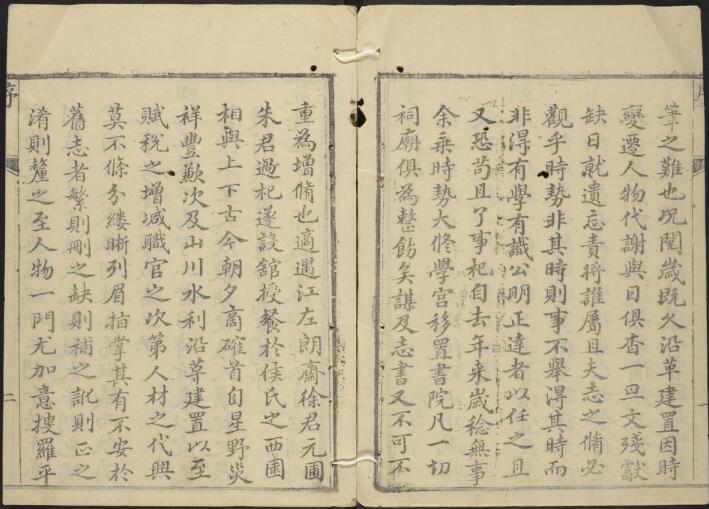 筆之難也况閱歲既久沿革建置因時
變遷人物代謝與日俱杳一旦文殘獻
缺日就遺忘責將誰屬且夫志之脩必
觀乎時勢非其時則事不舉得其時而
非得有學有識公明正達者以任之且
又恐苟且了事杞自去年来歲稔無事
余乘時势大修學宮移置書院凡一切
祠廟俱為整飭矣謀及志書又不可不
重為增脩也適遇江左朗齋徐君元圃
朱君過杞遂設舘授餐於侯氏之西園
相與上下古今朝夕商確首自星野災
祥豐歉次及山川水利沿革建置以至
賦稅之增减職官之次第人材之代興
莫不條分縷晰列眉指掌其有不安於
舊志者繁則刪之缺則補之訛則正之
淆則釐之至人物一門尤加意搜羅平
序
二